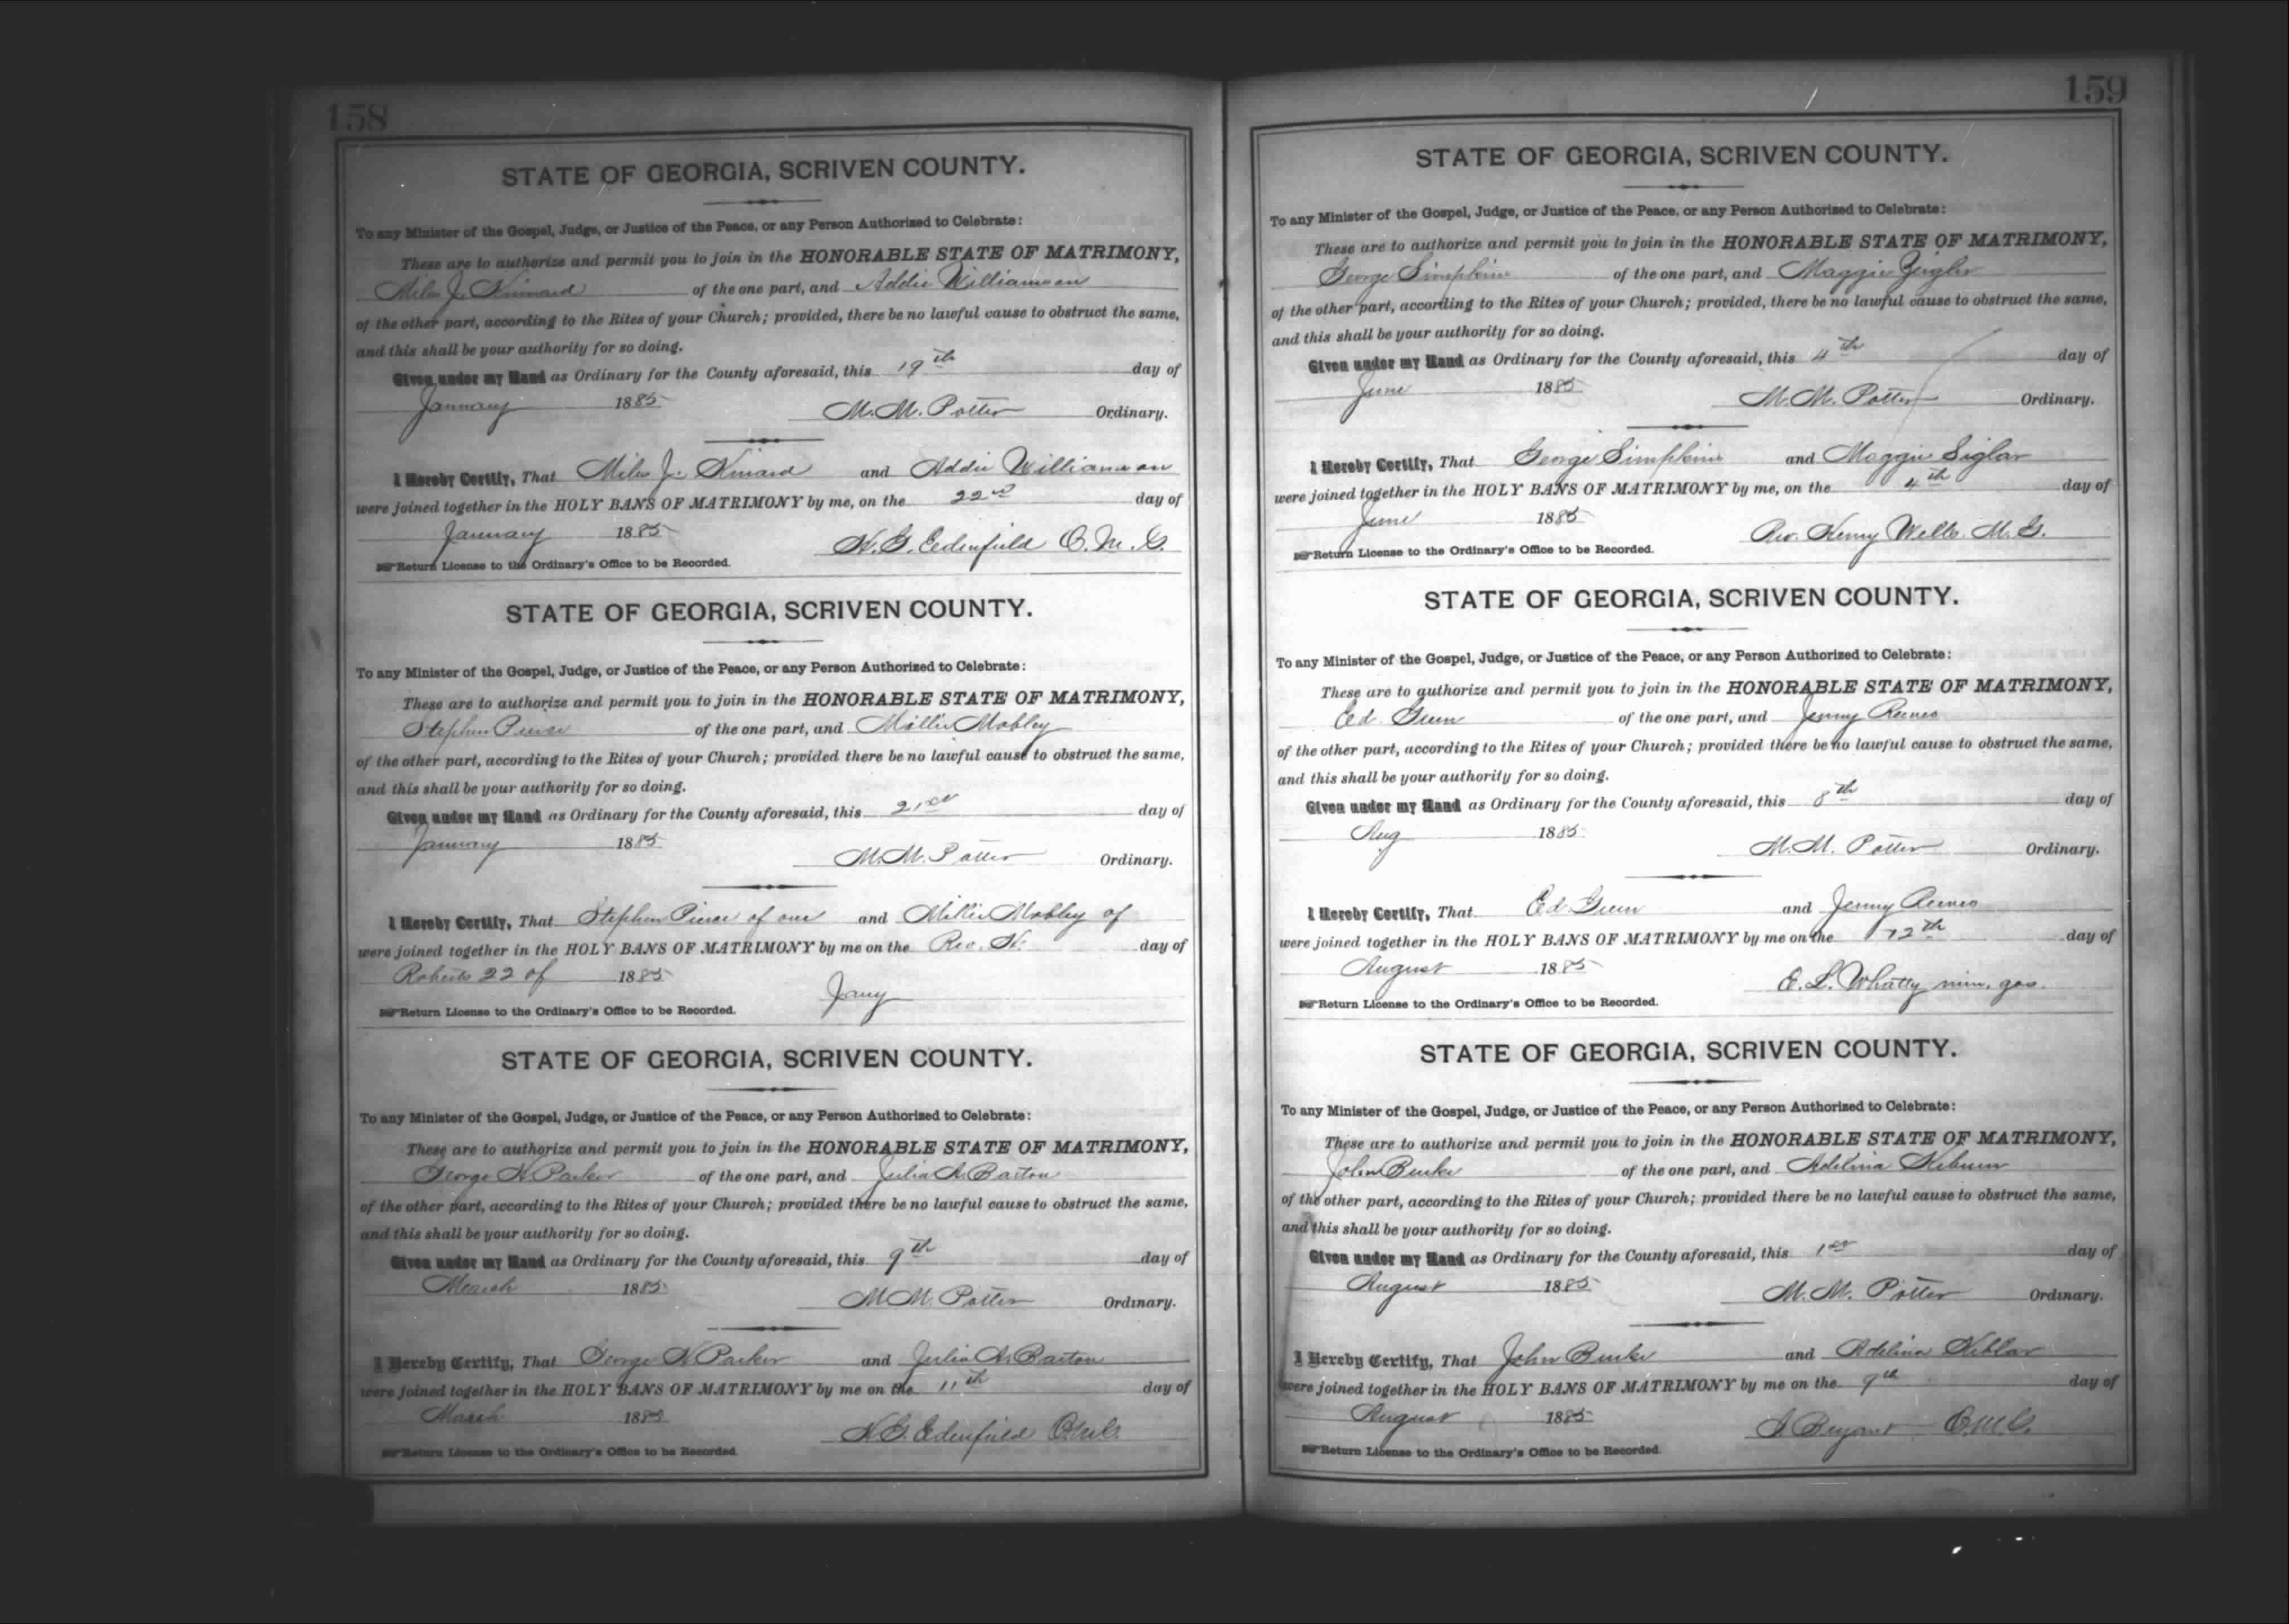 158
STATE OF GEORGIA, SCRIVEN COUNTY.
To any Minister of the Gospel, Judge, or Justice of the Peace, or any Person Authorized to Celebrate:
These are to authorize and permit you to join in the HONORABLE STATE OF MATRIMONY,
Miles J. Kinnard of the one part, and Addie Williamson
of the other part, according to the Rites of your Church; provided, there be no lawful cause to obstruct the same,
and this shall be your authority for so doing.
Given under my Hand as Ordinary for the County aforesaid, this 19th day of
January 1885 M. M. Potter Ordinary.
I Hereby Certify, That Miles J. Kinard and Addie Williamson
were joined together in the HOLY BANS OF MATRIMONY by me, on the 22nd day of
January 1885 N. G. Edenfield O. M. G.
Return License to the Ordinary's Office to be Recorded.
STATE OF GEORGIA, SCRIVEN COUNTY.
To any Minister of the Gospel, Judge, or Justice of the Peace, or any Person Authorized to Celebrate:
These are to authorize and permit you to join in the HONORABLE STATE OF MATRIMONY,
Stephen Pierce of the one part, and Millie Mobley
of the other part, according to the Rites of your Church; provided there be no lawful cause to obstruct the same,
and this shall be your authority for so doing.
Given under my Hand as Ordinary for the County aforesaid, this 21st day of
January 1885 M. M. Potter Ordinary.
I Hereby Certify, That Stephen Pierce of one and Millie Mobley of
were joined together in the HOLY BANS OF MATRIMONY by me on the Rev. H. day of
Roberts 22 of 1885 Jany
Return License to the Ordinary's Office to be Recorded.
STATE OF GEORGIA, SCRIVEN COUNTY.
To any Minister of the Gospel, Judge, or Justice of the Peace, or any Person Authorized to Celebrate:
These are to authorize and permit you to join in the HONORABLE STATE OF MATRIMONY,
George N Parker of the one part, and Julia A. Barton
of the other part, according to the Rites of your Church; provided there be no lawful cause to obstruct the same,
and this shall be your authority for so doing.
Given under my Hand as Ordinary for the County aforesaid, this 9th day of
March 1885 M. M. Potter Ordinary.
I Hereby Certify, That George N Parker and Julia A. Barton
were joined together in the HOLY BANS OF MATRIMONY by me on the 11th day of
March 1885 N. G. Edenfield
Return License to the Ordinary's Office to be Recorded.
159
STATE OF GEORGIA, SCRIVEN COUNTY.
To any Minister of the Gospel, Judge, or Justice of the Peace, or any Person Authorized to Celebrate:
These are to authorize and permit you to join in the HONORABLE STATE OF MATRIMONY,
George Simpkins of the one part, and Maggie Zeigler
of the other part, according to the Rites of your Church; provided, there be no lawful cause to obstruct the same,
and this shall be your authority for so doing.
Given under my Hand as Ordinary for the County aforesaid, this 4th day of
June 1885 M. M. Potter Ordinary.
I Hereby Certify, That George Simpkins and Maggie Siglar
were joined together in the HOLY BANS OF MATRIMONY by me, on the 4th day of
June 1885 Rev. Henry Wells. M. G.
Return License to the Ordinary's Office to be Recorded.
STATE OF GEORGIA, SCRIVEN COUNTY.
To any Minister of the Gospel, Judge, or Justice of the Peace, or any Person Authorized to Celebrate:
These are to authorize and permit you to join in the HONORABLE STATE OF MATRIMONY,
Ed. Green of the one part, and Jenny Reeves
of the other part, according to the Rites of your Church; provided there be no lawful cause to obstruct the same,
and this shall be your authority for so doing.
Given under my Hand as Ordinary for the County aforesaid, this 8th day of
Aug 1885 M. M. Potter Ordinary.
I Hereby Certify, That Ed. Green and Jenny Reeves
were joined together in the HOLY BANS OF MATRIMONY by me on the 12th day of
August 1885 E. L. Whatly min. gos.
Return License to the Ordinary's Office to be Recorded.
STATE OF GEORGIA, SCRIVEN COUNTY.
To any Minister of the Gospel, Judge, or Justice of the Peace, or any Person Authorized to Celebrate:
These are to authorize and permit you to join in the HONORABLE STATE OF MATRIMONY,
John Burke of the one part, and Adelina
of the other part, according to the Rites of your Church; provided there be no lawful cause to obstruct the same,
and this shall be your authority for so doing.
Given under my Hand as Ordinary for the County aforesaid, this 1st day of
August 1885 M. M. Potter Ordinary.
I Hereby Certify, That John Burke and Adelina Kiblar
were joined together in the HOLY BANS OF MATRIMONY by me on the 9th day of
August 1885 Bryant O.M.G.
Return License to the Ordinary's Office to be Recorded.